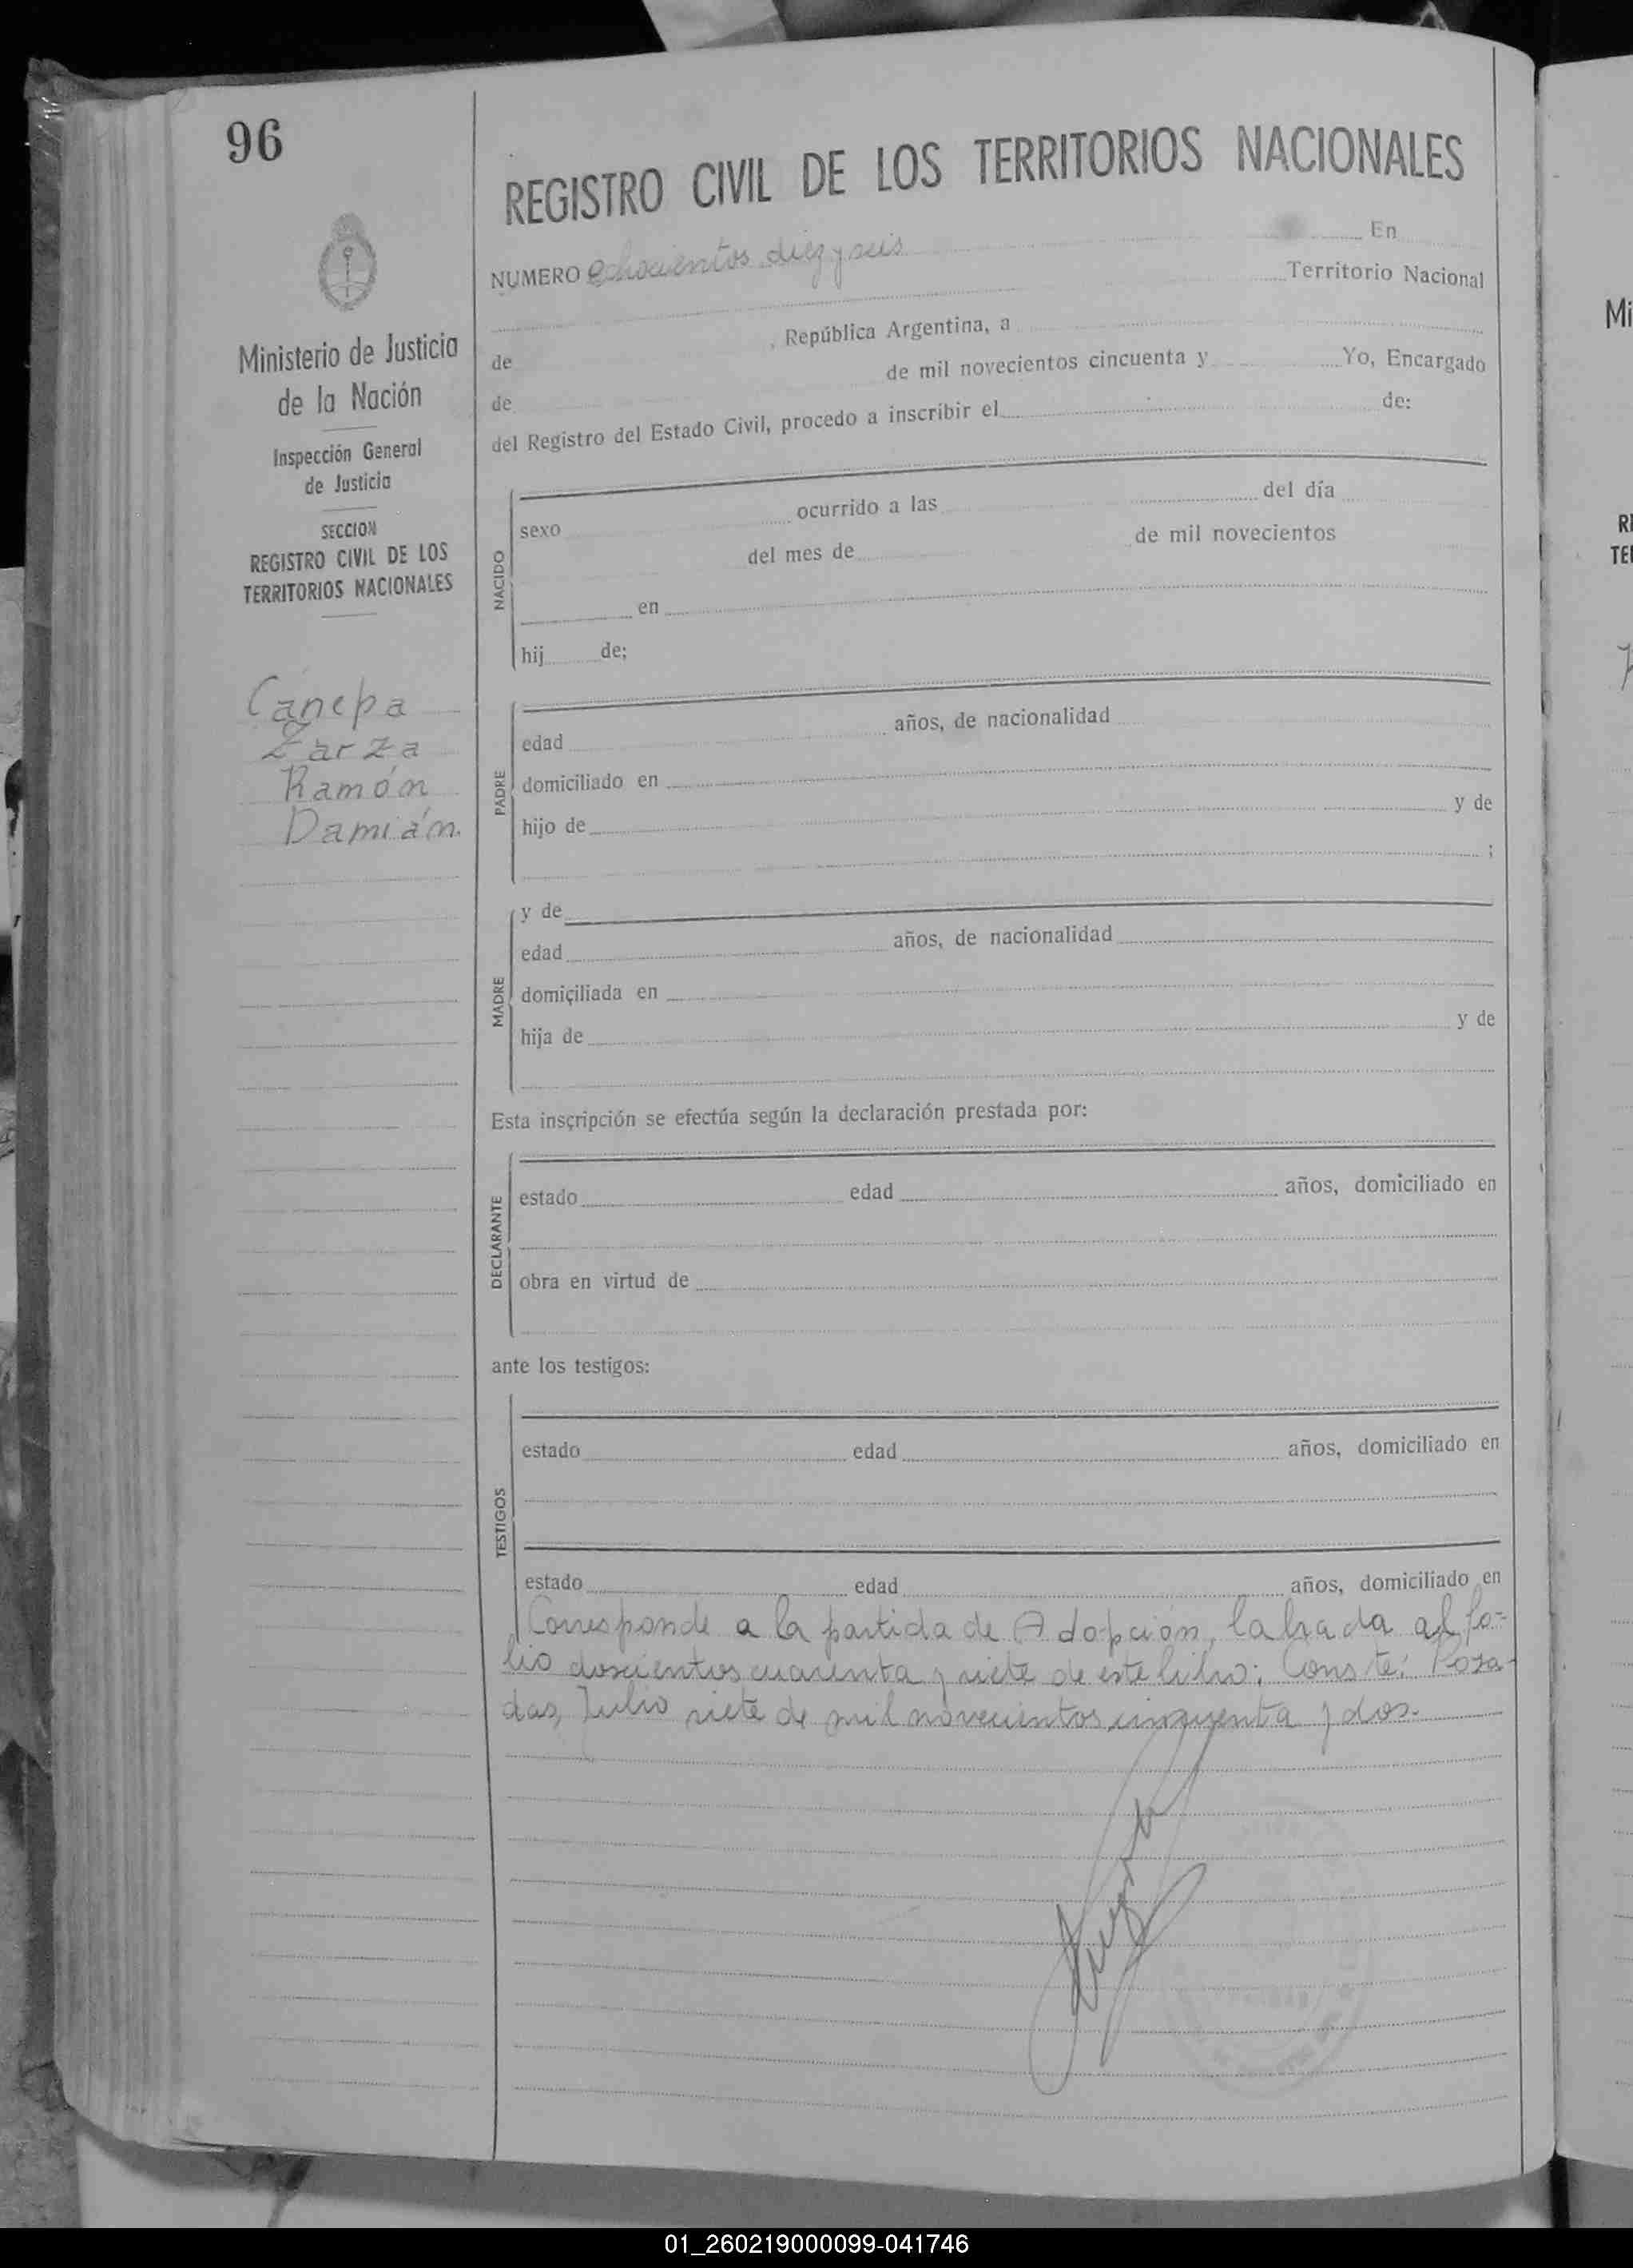 96
Ministerio de Justicia
de la Nación
Inspección General
de Justicia
SECCION
REGISTRO CIVIL DE LOS
TERRITORIOS NACIONALES
Canepa
Zarza
Ramón
Damián.
REGISTRO CIVIL DE LOS TERRITORIOS NACIONALES
NUMERO Ochocientos diez y seis En
Territorio Nacional
de , República Argentina, a
de de mil novecientos cincuenta y Yo, Encargado
del Registro del Estado Civil, procedo a inscribir el de:
NACIDO
sexo ocurrido a las del día
del mes de de mil novecientos
en
hij de;
PADRE
edad años, de nacionalidad
domiciliado en
hijo de y de
;
MADRE
y de
edad años, de nacionalidad
domiciliada en
hija de y de
Esta inscripción se efectúa según la declaración prestada por:
DECLARANTE
estado edad años, domiciliado en
obra en virtud de
ante los testigos:
TESTIGOS
estado edad años, domiciliado en
estado edad años, domiciliado en
Corresponde a la partida de Adopción, labrada al fo=
lio doscientos cuarenta y siete de este libro; Conste: Posa-
das, Julio siete de mil novecientos cinquenta y dos.
Mi
RE
TER
01_260219000099-041746